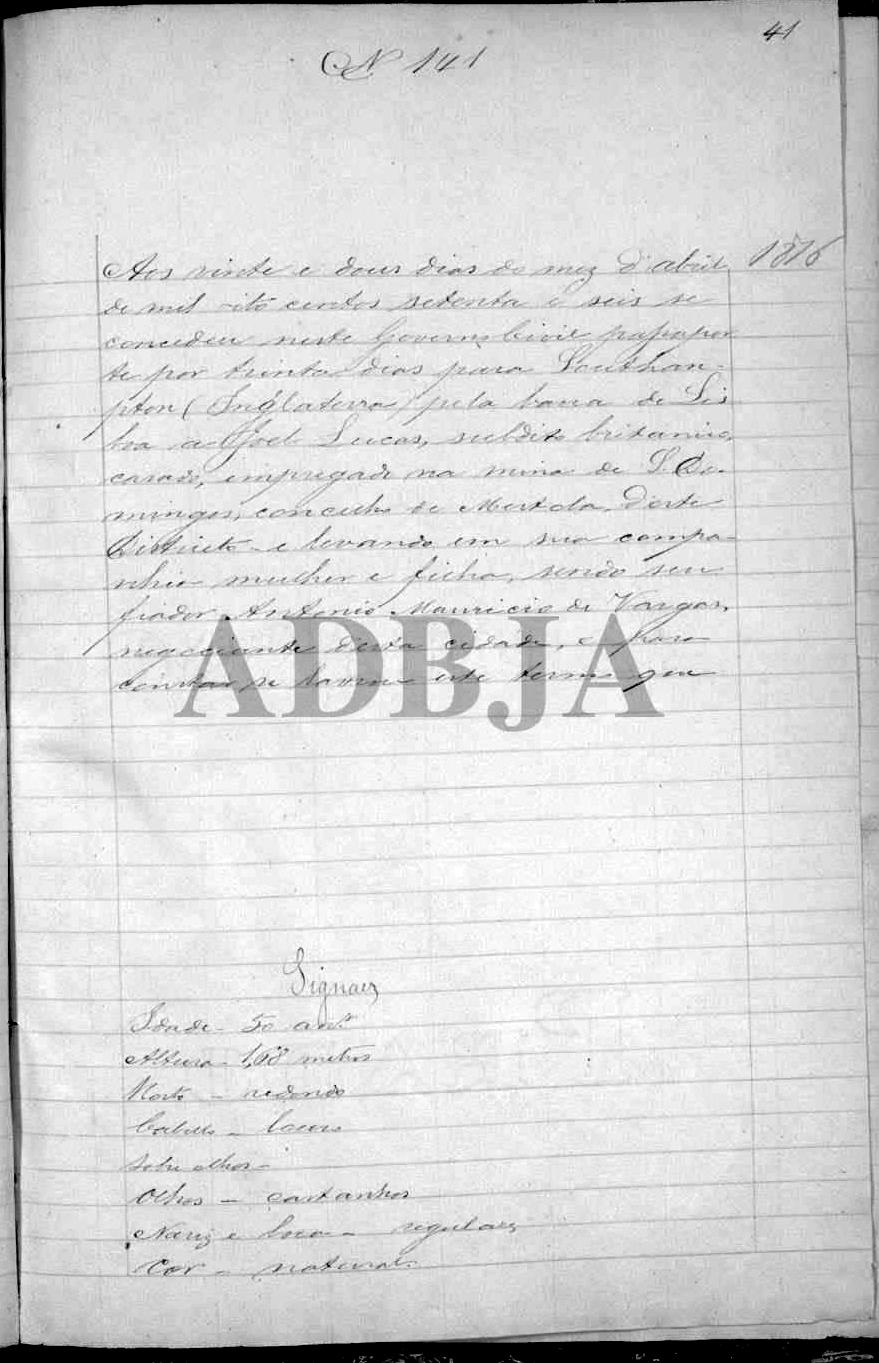 41
N 141
1876
Aos vinte e dous dias do mez d'abril
de mil oito centos setenta e seis se
concedeu neste Governo Civil passapor
te por trinta dias para Southan-
pton (Inglaterra) pela barra de Lis
boa a Joel Lucas, subdito britanico,
casado, empregado na mina de S. Do-
mingos, concelho de Mertola, d'este
Districto e levando em sua compa-
nhia mulher e filha, sendo seu
fiador Antonio Mauricio de Vargas,
negociante desta cidade, e para
constar se lavrou este termo que
ADBJA
Signaes
Idade - 50 ann.
Altura - 1,68 metros
Rosto - redondo
Cabello - louro
Sobre olhos -
Olhos - castanhos
Nariz e boca - regulares
Cor - natural.